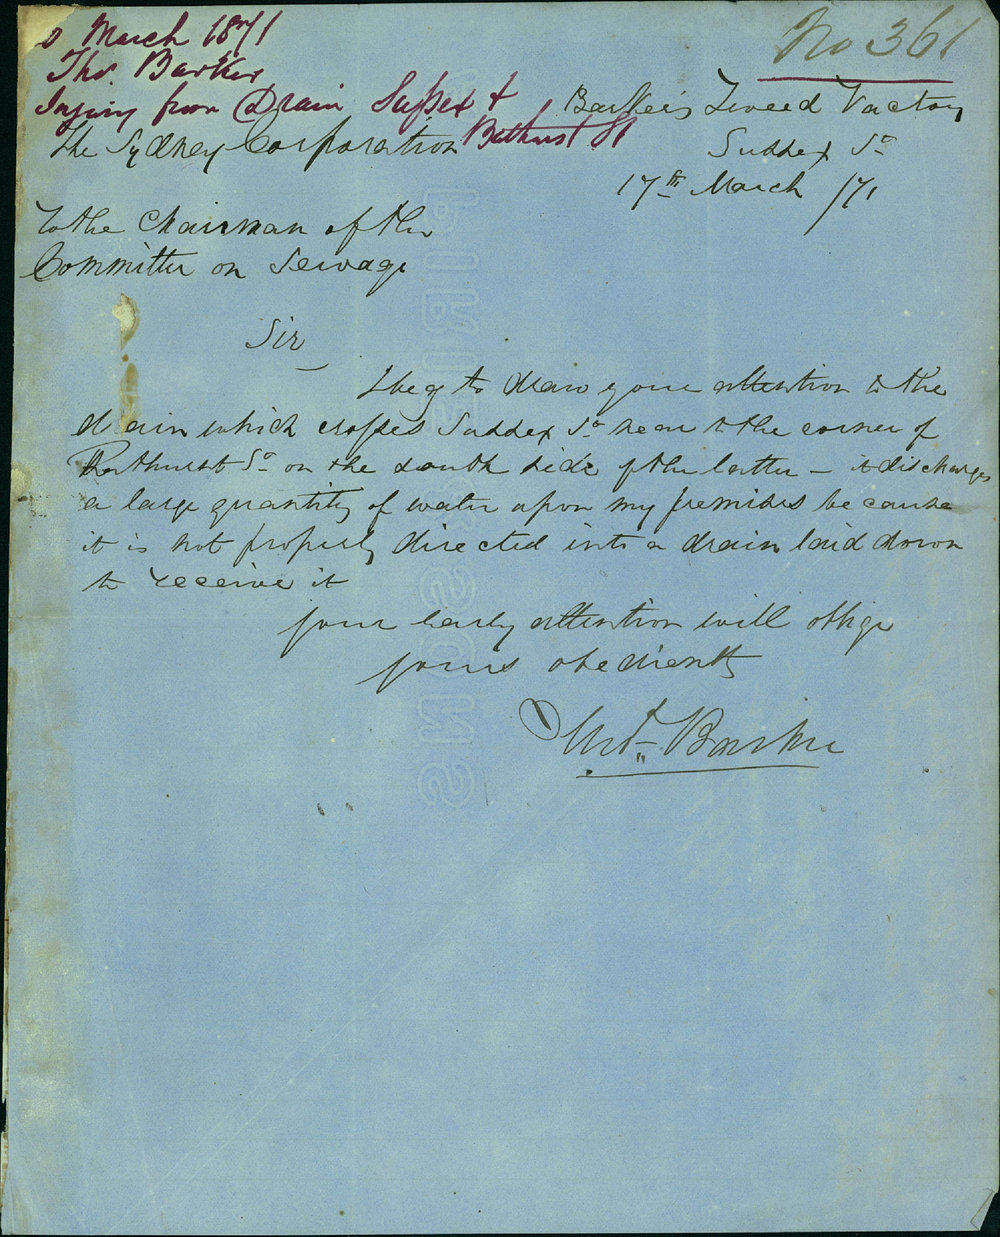 March 1871
Thos. Barker
Injury from Drain Sussex &
Bathurst St
No 361
The Sydney Corporation
Barker's Tweed Factory
Sussex St
17th March /71
To the Chairman of the
Committee on Sewage
Sir
I beg to draw your attention to the
drain which crosses Sussex St near to the corner of
Bathurst St on the south side of the latter – it discharges
a large quantity of water upon my premises because
it is not properly directed into a drain laid down
to receive it
your early attention will oblige
yours obediently
Thos. Barker